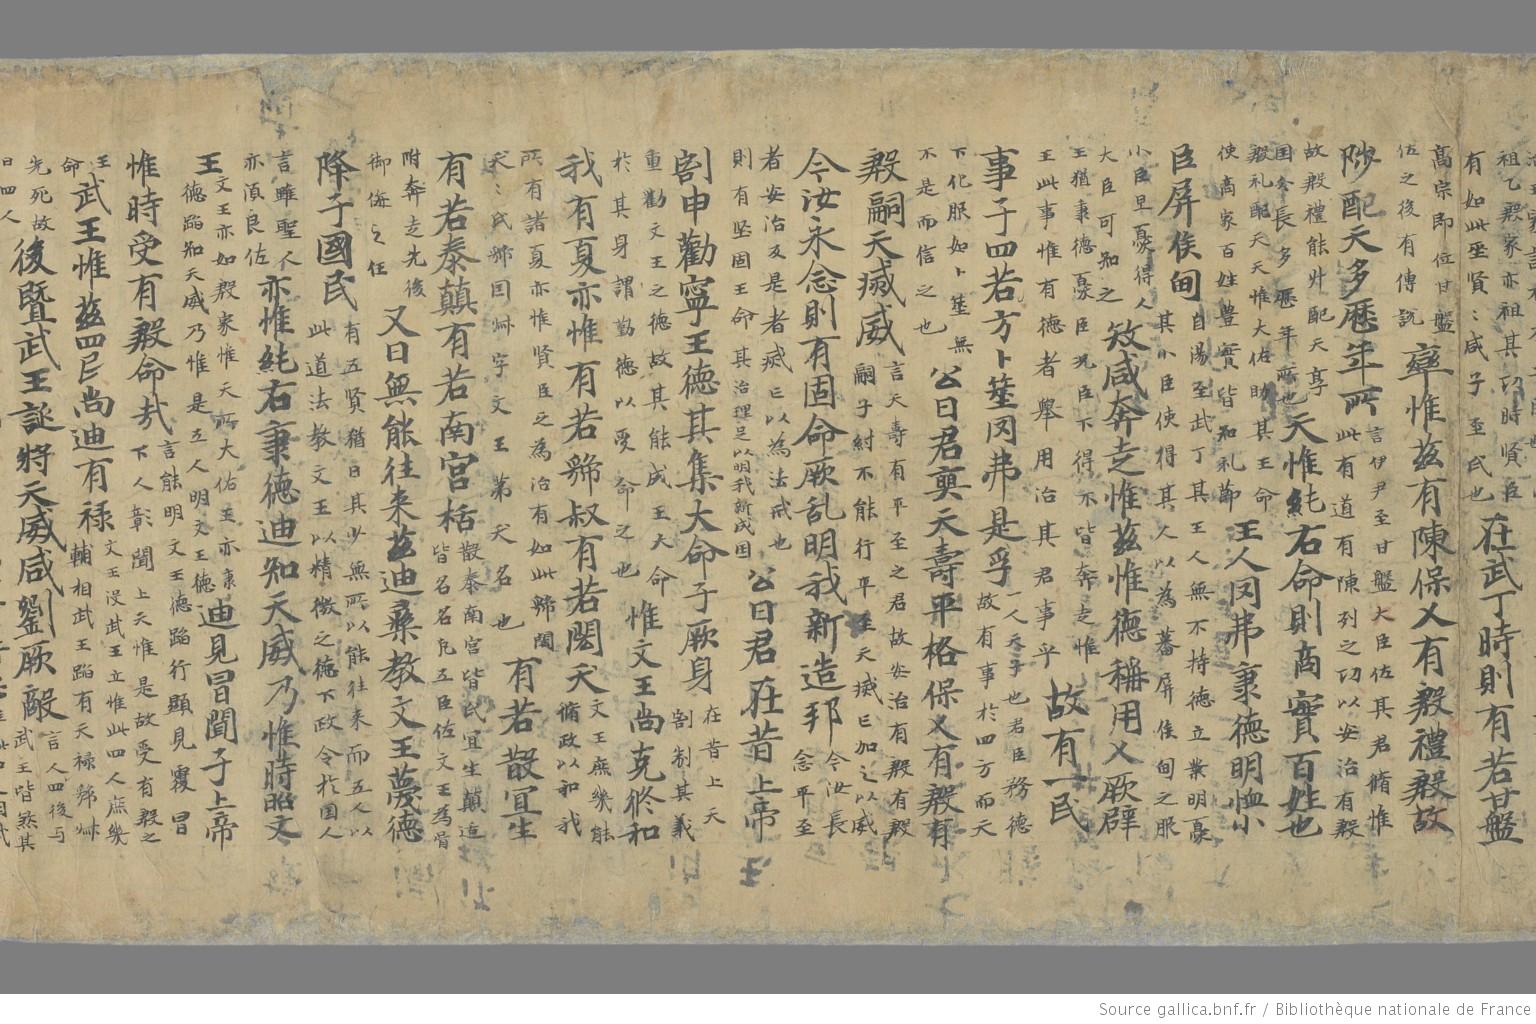 祖乙殷家亦祖其功時賢臣
有如此巫賢〻咸子至氏也
在武丁時則有若甘盤
高宗即位甘盤
佐之後有傅說
率惟茲有陳保乂有殷禮殷故
陟配天多歷年所
言伊尹至甘盤大臣佐其君脩惟
此有道有陳列之功以安治有殷
故殷禮能升配天享
国久長多歷年所也
天惟純右命則商實百姓也
殷礼配天天惟大佑助其王命
使商家百姓豊實皆知礼節
王人罔弗秉德明恤小
臣屏侯甸
自湯至武丁其王人無不持德立業明憂
其小臣使得其人以為蕃屏侯甸之服
小臣早憂得人
大臣可知之
矧咸奔走惟茲惟德稱用乂厥辟
王猶秉德憂臣況臣下得不皆奔走惟
王此事惟有德者舉用治其君事乎
故有一民
事于四若方卜筮罔弗是孚
一人天子也君臣務德
故有事於四方而天
下化服如卜筮無
不是而信之也
公曰君奭天壽平格保乂有殷有
殷嗣天滅威
言天壽有平至之君故安治有殷有殷
嗣子紂不能行平至天滅亡加之以威
今汝永念則有固命厥乱明我新造邦
今汝長
念平至
者安治反是者滅亡以為法戒也
則有坚固王命其治理足以明我新成国
公曰君在昔上帝
割申勸寧王德其集大命于厥身
在昔上天
割制其義
重勸文王之德故其能成王大命
於其身謂勤德以受命之也
惟文王尚克修和
我有夏亦惟有若虢叔有若閎夭
文王庶幾能
脩政以和我
所有諸夏亦惟賢臣之為治有如此虢閎
夭〻氏虢国叔字文王弟夭名也
有若散宜生
有若泰顛有若南宮括
散泰南宮皆氏宜生顛适
皆名名凡五臣佐文王為胥
附奔走先後
御侮之任
又曰無能往来茲迪彝教文王蔑德
降于國民
有五賢猶曰其少無所以能往来而五人以
此道法教文王以精微之德下政令於国人
言雖聖人
亦須良佐
亦惟純右秉德迪知天威乃惟時昭文
王
文王亦如殷家惟天所大佑王亦秉
德蹈知天威乃惟是五人明文王德
迪見冒聞于上帝
惟時受有殷命哉
言能明文王德蹈行顯見覆冒
下人彰聞上天惟是故受有殷之
王
命
武王惟茲四人尚迪有禄
文王没武王立惟此四人庶幾
輔相武王蹈有天禄虢叔
先死故
曰四人
後暨武王誕将天威咸劉厥敵
言人四後与
武王皆煞其
Source gallica.bnf.fr / Bibliothèque nationale de France